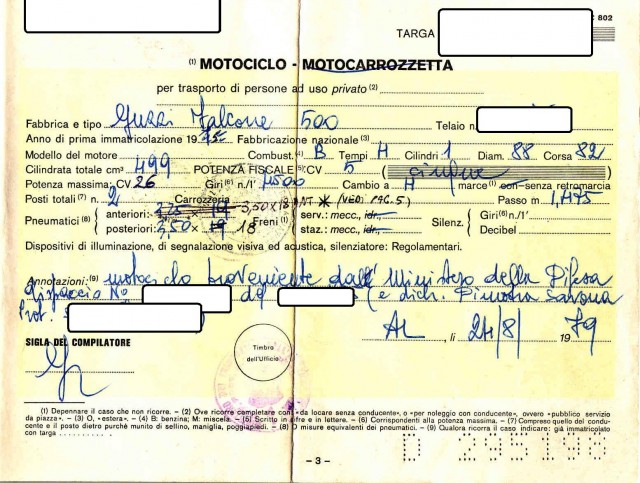 C 802
TARGA
(1) MOTOCICLO - MOTOCARROZZETTA
per trasporto di persone ad uso privato (2)
Fabbrica e tipo Guzzi Falcone 500 Telaio n.
Anno di prima immatricolazione 19 75 Fabbricazione nazionale (3)
Modello del motore Combust. (4) B Tempi 4 Cilindri 1 Diam. 88 Corsa 82
Cilindrata totale cm³ 499 POTENZA FISCALE (5): CV 5 ( cinque )
Potenza massima: CV 26 Giri (6) n./1' Cambio a 4 marce (1) con-senza retromarcia
Posti totali (7) n. 2 Carrozzeria (VEDI PAG. 5) Passo m 1,475
Pneumatici (8) anteriori: 3,50 x 18 Freni (1) serv.: mecc., idr. Silenz. Giri (6) n./1'
posteriori: 3,50 - 18 staz.: mecc., idr. Decibel
Dispositivi di illuminazione, di segnalazione visiva ed acustica, silenziatore: Regolamentari.
Annotazioni: (9) motociclo proveniente dall' Ministero della Difesa
dispaccio N° del (e dich. Savona
Prot.
AL, lì 24/8/ 19 79
SIGLA DEL COMPILATORE
Timbro dell'Ufficio
(1) Depennare il caso che non ricorre. – (2) Ove ricorre completare con «da locare senza conducente», o «per noleggio con conducente», ovvero «pubblico servizio
da piazza». – (3) O, «estera». – (4) B: benzina; M: miscela. – (5) Scritto in cifre e in lettere. – (6) Corrispondenti alla potenza massima. – (7) Compreso quello del condu-
cente e il posto dietro purché munito di sellino, maniglia, poggiapiedi. – (8) O misure equivalenti dei pneumatici. – (9) Qualora ricorra il caso indicare: già immatricolato
con targa
D 295198
– 3 –